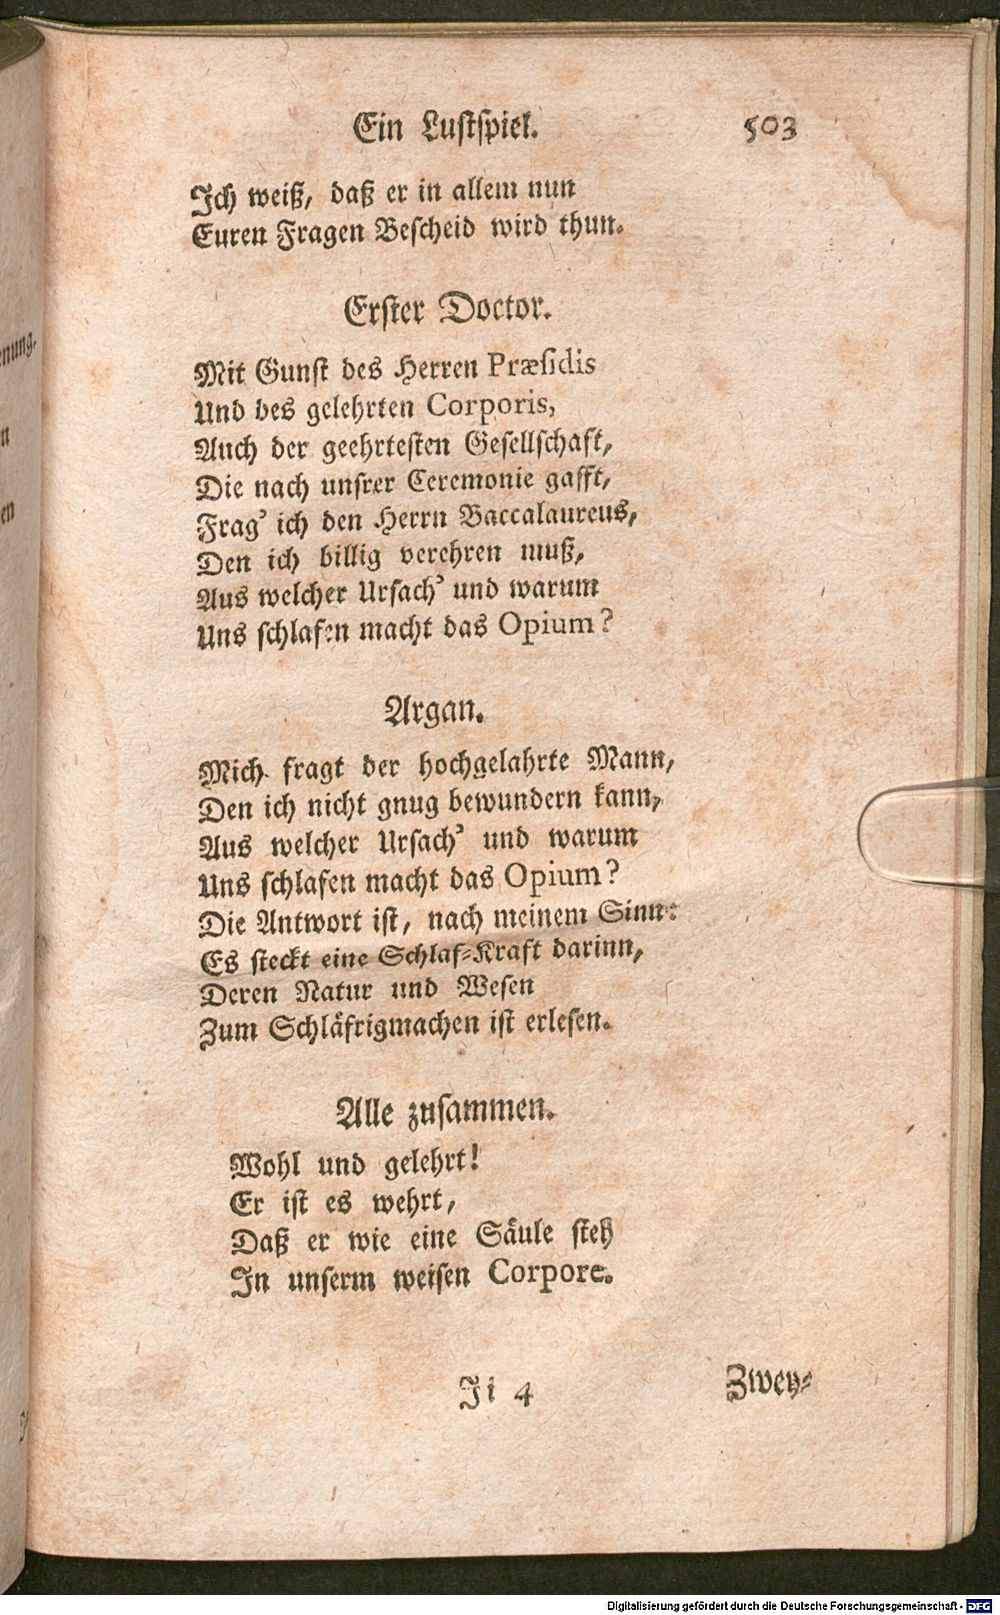 Ein Lustspiel. 503
Ich weiß, daß er in allem nun
Euren Fragen Bescheid wird thun.
Erster Doctor.
Mit Gunst des Herren Præsidis
Und des gelehrten Corporis,
Auch der geehrtesten Gesellschaft,
Die nach unsrer Ceremonie gafft,
Frag' ich den Herrn Baccalaureus,
Den ich billig verehren muß,
Aus welcher Ursach' und warum
Uns schlafen macht das Opium?
Argan.
Mich fragt der hochgelahrte Mann,
Den ich nicht gnug bewundern kann,
Aus welcher Ursach' und warum
Uns schlafen macht das Opium?
Die Antwort ist, nach meinem Sinn:
Es steckt eine Schlaf-Kraft darinn,
Deren Natur und Wesen
Zum Schläfrigmachen ist erlesen.
Alle zusammen.
Wohl und gelehrt!
Er ist es wehrt,
Daß er wie eine Säule steh
In unserm weisen Corpore.
Ii 4 Zwey-
Digitalisierung gefördert durch die Deutsche Forschungsgemeinschaft - DFG